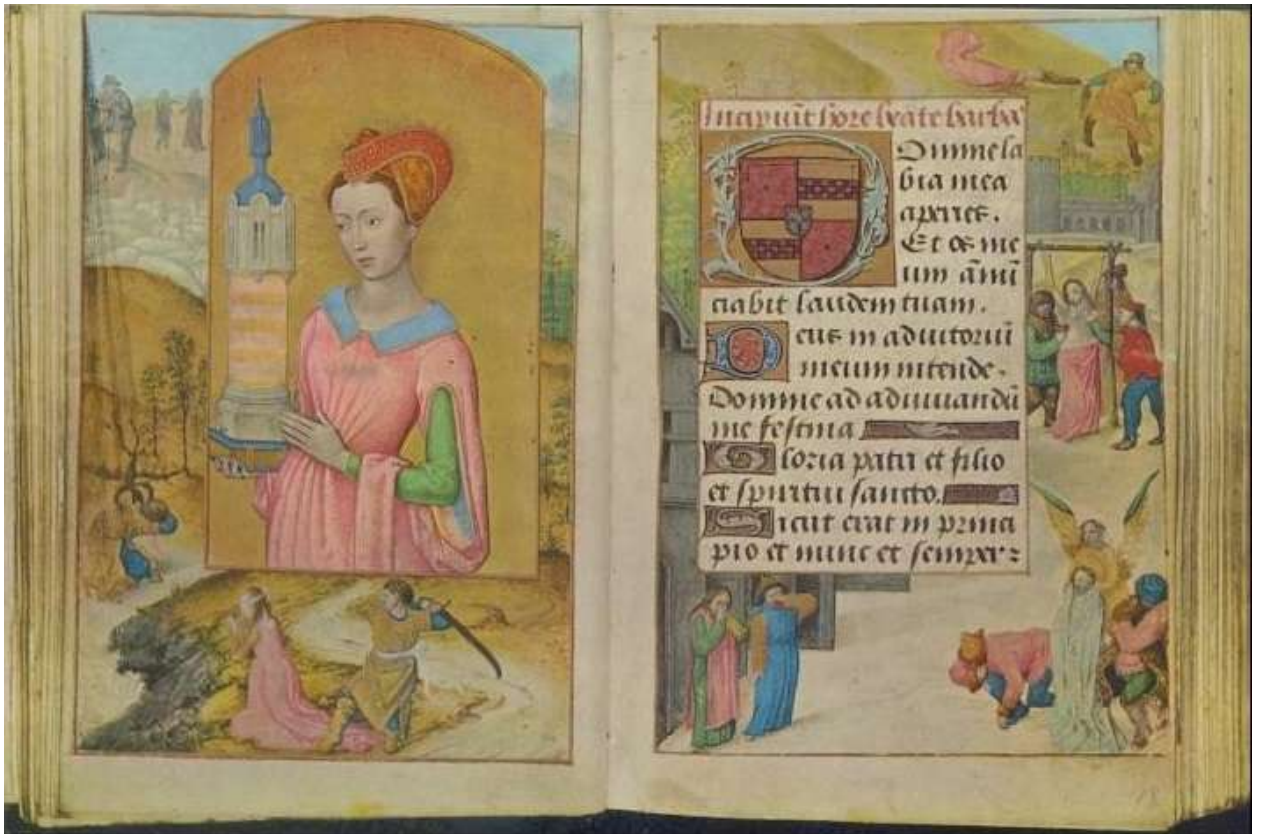 Incipiūt hore beate barbā
Domine la
bia mea
aperies.
Et os me
um ānū
ciabit laudem tuam.
Deus in adiutoriū
meum intende.
Domine ad adiuuandū
me festina
Gloria patri et filio
et spiritui sancto.
Sicut erat in princi
pio et nunc et semper: